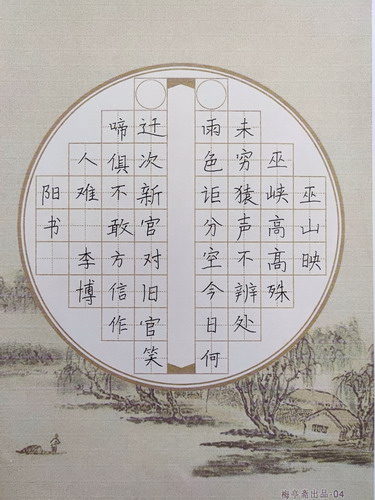 巫山映
巫峡高高殊
未穷猿声不辨处
雨色讵分空今日何
迁次新官对旧官笑
啼俱不敢方信作
人难 李博
阳书
梅亭斋出品·04